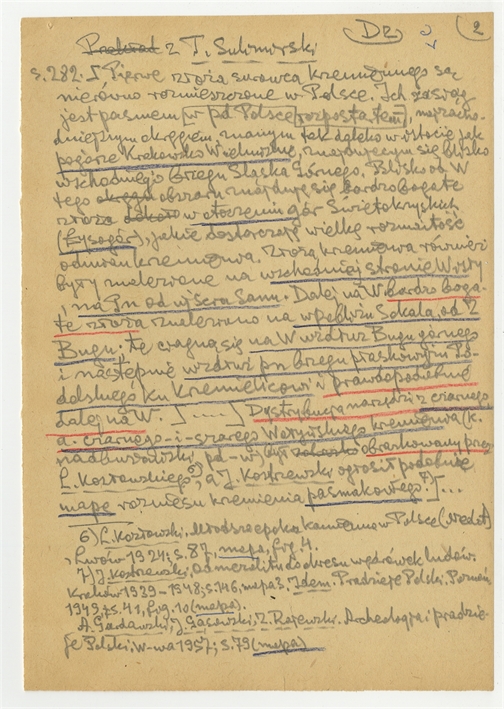 D2 2
Przekład z T. Sulimirski
s. 282. [Pierw. złoża surowca krzemiennego są
nierówno rozmieszczone w Polsce. Ich zasięg
jest pasmem [w pd Polsce rozpostartem], najzacho-
dniejszym okręgiem znanym tak daleko w istocie jak
pogórze Krakowsko Wieluńskie, znajdującym się blisko
wschodniego brzegu Śląska Górnego. Blisko od W
tego obszaru znajdują się bardzo bogate
złoża w otoczeniu gór Świętokrzyskich
(Łysogór), jakie dostarczają wielką rozmaitość
odmian krzemienia. Złoża krzemienia również
były znalezione na wschodniej stronie Wisły
, na Pn od ujścia Sanu. Dalej na W bardzo boga-
te złoża znaleziono na wpobliżu Sokala, od Z
Bugu, te ciągną się na W wzdłuż Bugu górnego
i następnie wzdłuż pn brzegu płaskowyżu Po-
dolskiego ku Krzemieńcowi i prawdopodobnie
dalej na W. ] ..... ] Dystrybucja narzędzi z czarnego,
a. czarnego-i-szarego Wołyńskiego krzemienia (k.
nadbużański, pd-wy) był obrankowany przez
L. Kozłowskiego 6), a J. Kostrzewski ogłosił podobnie
mapę rozniesu krzemienia pasmakowego. 7)] ...
6) L. Kozłowski, Młodsza epoka kamienna w Polsce (Neolit)
, Lwów 1924; s. 87, mapa, fig. 4.
7) J. Kostrzewski, Od mezolitu do okresu wędrówek ludów.
Kraków 1939-1948; s. 146, mapa 3. Idem. Pradzieje Polski. Poznań
1949, s. 41, fig. 10 (mapa).
A. Gardawski, J. Gąssowski, Z. Rajewski. Archeologia i pradzie-
je Polski, W-wa 1957; s. 79 (mapa)